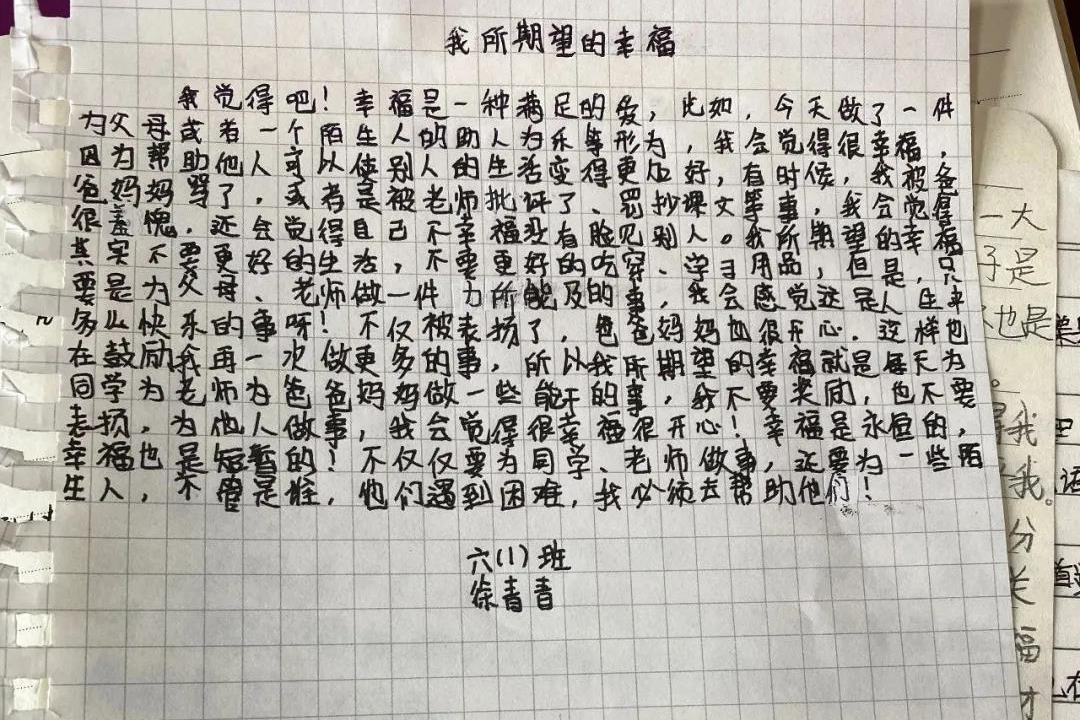 我所期望的幸福
我觉得吧！幸福是一种满足的爱，比如，今天做了一件
为父母或者一个陌生人的助人为乐等形为，我会觉得很幸福，
因为帮助他人可以使别人的生活变得更加好，有时候，我被爸
爸妈妈骂了，或者是被老师批评了、罚抄课文等事，我会觉得
很羞愧，还会觉得自己不幸福没有脸见别人。我所期望的幸福
其实不要更好的生活，不要更好的吃穿、学习用品，但是，只
要是为父母、老师做一件力所能及的事，我会感觉这是人生平
多么快乐的事呀！不仅被表扬了，爸爸妈妈也很开心，这样也
在鼓励我再一次做更多的事，所以我所期望的幸福就是每天为
同学为老师为爸爸妈妈做一些能干的事，我不要奖励，也不要
表扬，为他人做事，我会觉得很幸福很开心！幸福是永恒的，
幸福也是短暂的！不仅仅要为同学、老师做事，还要为一些陌
生人，不管是谁，他们遇到困难，我必须去帮助他们！
六(1)班
徐青青
一大
子是
也是
我
我。
分
关
福